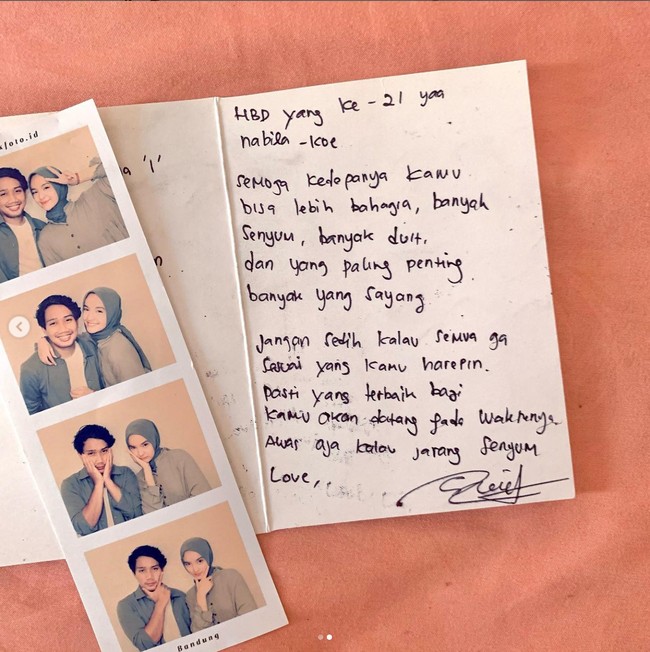 foto.id
a '1'
n
HBD yang ke-21 yaa
nabila-koe
semoga kedepanya kamu
bisa lebih bahagia, banyak
senyuu, banyak duit,
dan yang paling penting
banyak yang sayang
jangan sedih kalau semua ga
sesuai yang kamu harepin.
pasti yang terbaik bagi
kamu akan datang pada waktunya
awas aja kalau jarang senyum
Love,
Bandung